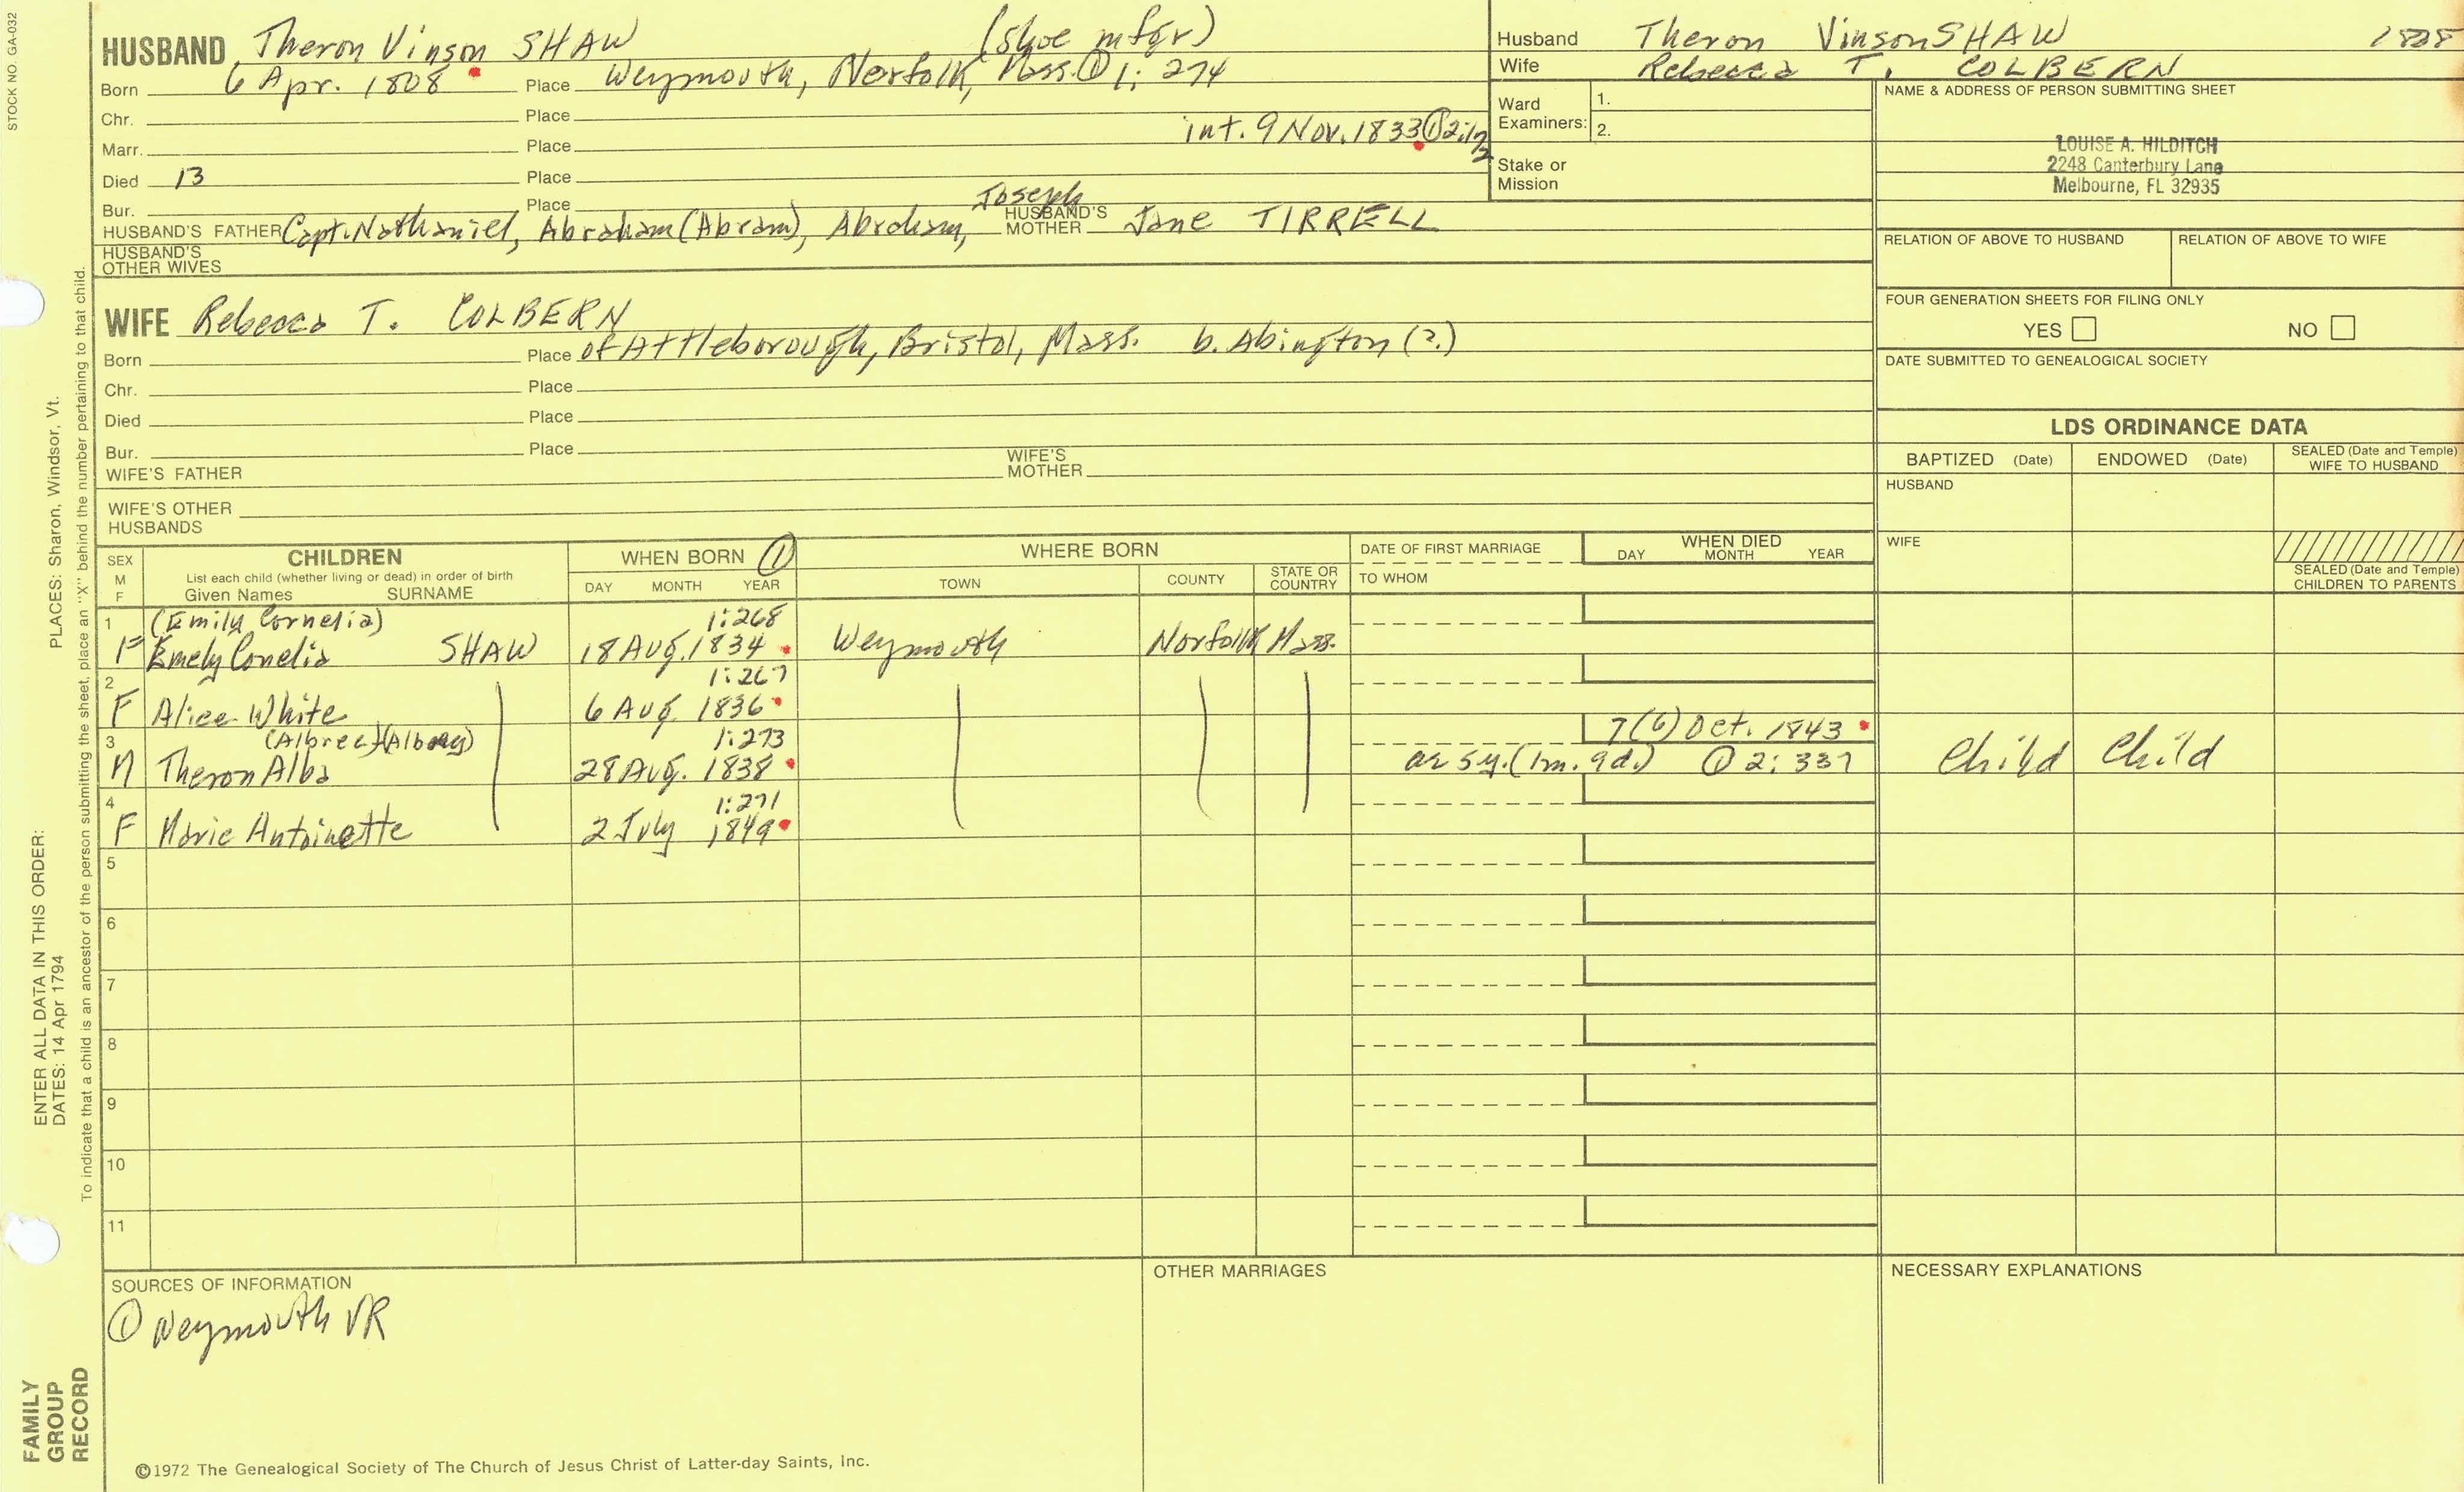 STOCK NO. GA-032
HUSBAND Theron Vinson SHAW (Shoe mfgr)
Born 6 Apr. 1808 Place Weymouth, Norfolk, Mass. ① 1: 274
Chr. Place
int. 9 Nov. 1833 ① 2:172
Marr. Place
Died 13 Place
Bur. Place
HUSBAND'S FATHER Capt. Nathaniel, Abraham (Abram), Abraham, Joseph HUSBAND'S MOTHER Jane TIRRELL
HUSBAND'S OTHER WIVES
WIFE Rebecca T. COLBERN
Born Place of Attleborough, Bristol, Mass. b. Abington (?)
Chr. Place
Died Place
Bur. Place
WIFE'S FATHER WIFE'S MOTHER
WIFE'S OTHER HUSBANDS
Husband Theron Vinson SHAW 1808
Wife Rebecca T. COLBERN
Ward Examiners: 1.
2.
Stake or Mission
NAME & ADDRESS OF PERSON SUBMITTING SHEET
LOUISE A. HILDITCH
2248 Canterbury Lane
Melbourne, FL 32935
RELATION OF ABOVE TO HUSBAND RELATION OF ABOVE TO WIFE
FOUR GENERATION SHEETS FOR FILING ONLY
YES NO
DATE SUBMITTED TO GENEALOGICAL SOCIETY
LDS ORDINANCE DATA
BAPTIZED (Date) ENDOWED (Date) SEALED (Date and Temple) WIFE TO HUSBAND
HUSBAND
WIFE
SEALED (Date and Temple) CHILDREN TO PARENTS
SEX M F
CHILDREN
List each child (whether living or dead) in order of birth
Given Names SURNAME
WHEN BORN ①
DAY MONTH YEAR
WHERE BORN
TOWN COUNTY STATE OR COUNTRY
DATE OF FIRST MARRIAGE
TO WHOM
WHEN DIED
DAY MONTH YEAR
1 (Emily Cornelia) 1:268
F Emely Conelia SHAW 18 Aug. 1834 Weymouth Norfolk Mass.
2 1:267
F Alice White 6 Aug. 1836
3 (Albree) 1:273 7(6) Oct. 1843
M Theron Alba 28 Aug. 1838 ae 5y. (1m. 9d.) ① 2: 337 Child Child
4 1:271
F Marie Antoinette 2 July 1849
5
6
7
8
9
10
11
SOURCES OF INFORMATION
① Weymouth VR
OTHER MARRIAGES
NECESSARY EXPLANATIONS
©1972 The Genealogical Society of The Church of Jesus Christ of Latter-day Saints, Inc.
FAMILY
GROUP
RECORD
ENTER ALL DATA IN THIS ORDER:
DATES: 14 Apr 1794
PLACES: Sharon, Windsor, Vt.
To indicate that a child is an ancestor of the person submitting the sheet, place an "X" behind the number pertaining to that child.